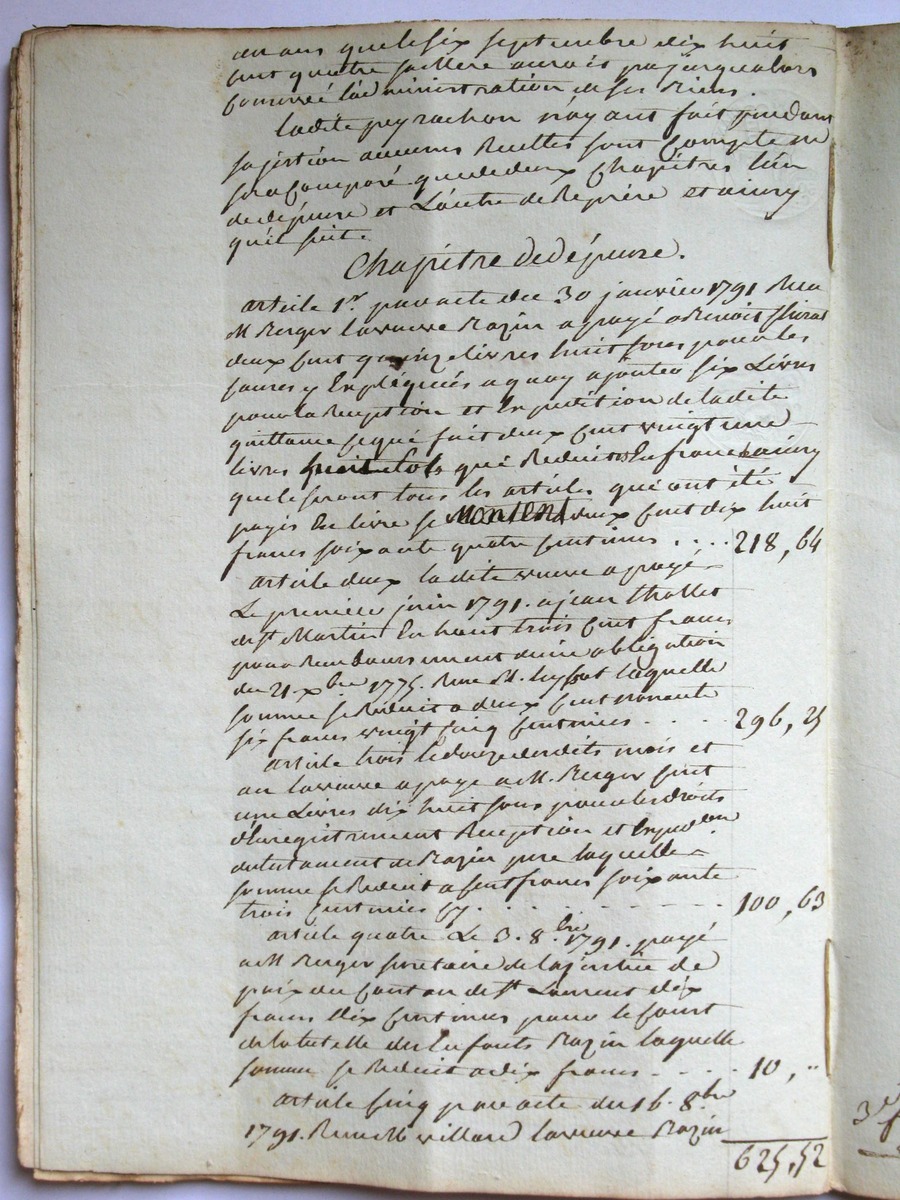 ans que le six septembre dix huit
cent quatre sa mere auroit jusqu'alors
Conservé l'administration de ses Biens.
ladite peyrachon n'ayant fait pendant
sa jestion aucunes Recettes sont Compte ne
sera Composé que de deux Chapitres l'un
de dépense et L'autre de Reprise et ainsy
qu'il suit.
Chapitre de dépense.
article 1er par acte du 30 janvier 1791 Reçu
M Berger la veuve Razin a payé a Benoit
deux cent quinze livres huit sous pour les
causes y Enpléquées a quoy ajouter six Livres
pour la Reception et Expedition de ladite
quittance ce qui fait deux cent vingt une
livres huit sols qui Reduites En francs ainsy
que le seront tous les articles qui ont été
payés En livre se montent deux cent dix huit
francs soixante quatre centimes . . . . 218, 64
article deux ladite veuve a payé
Le premier juin 1791. a jean thollet
de St Martin En haut trois cent francs
pour Remboursement d'une obligation
du 21. xbre 1775. Reçue M. laquelle
somme se Reduit a deux cent nonante
six francs vingt cinq centimes . . . . 296, 25
article trois le douze desdits mois et
an la veuve a payé a M. Berger cent
une Livres dix huit sous pour les droits
d'Enregistrement Reception et Expedon
du testament de Razin pere laquelle
somme se Reduit a cent francs soixante
trois centimes cy . . . . . . . 100, 63
article quatre Le 3. 8.bre 1791. payé
a M Berger secretaire de la justice de
paix du Canton de St Laurent dix
francs dix centimes pour le Cout
de la tutelle des Enfants Razin laquelle
somme se Reduit a dix francs . . . . 10, "
article cinq par acte du 16. 8bre
1791. Reçu M villard la veuve Razin
625, 52